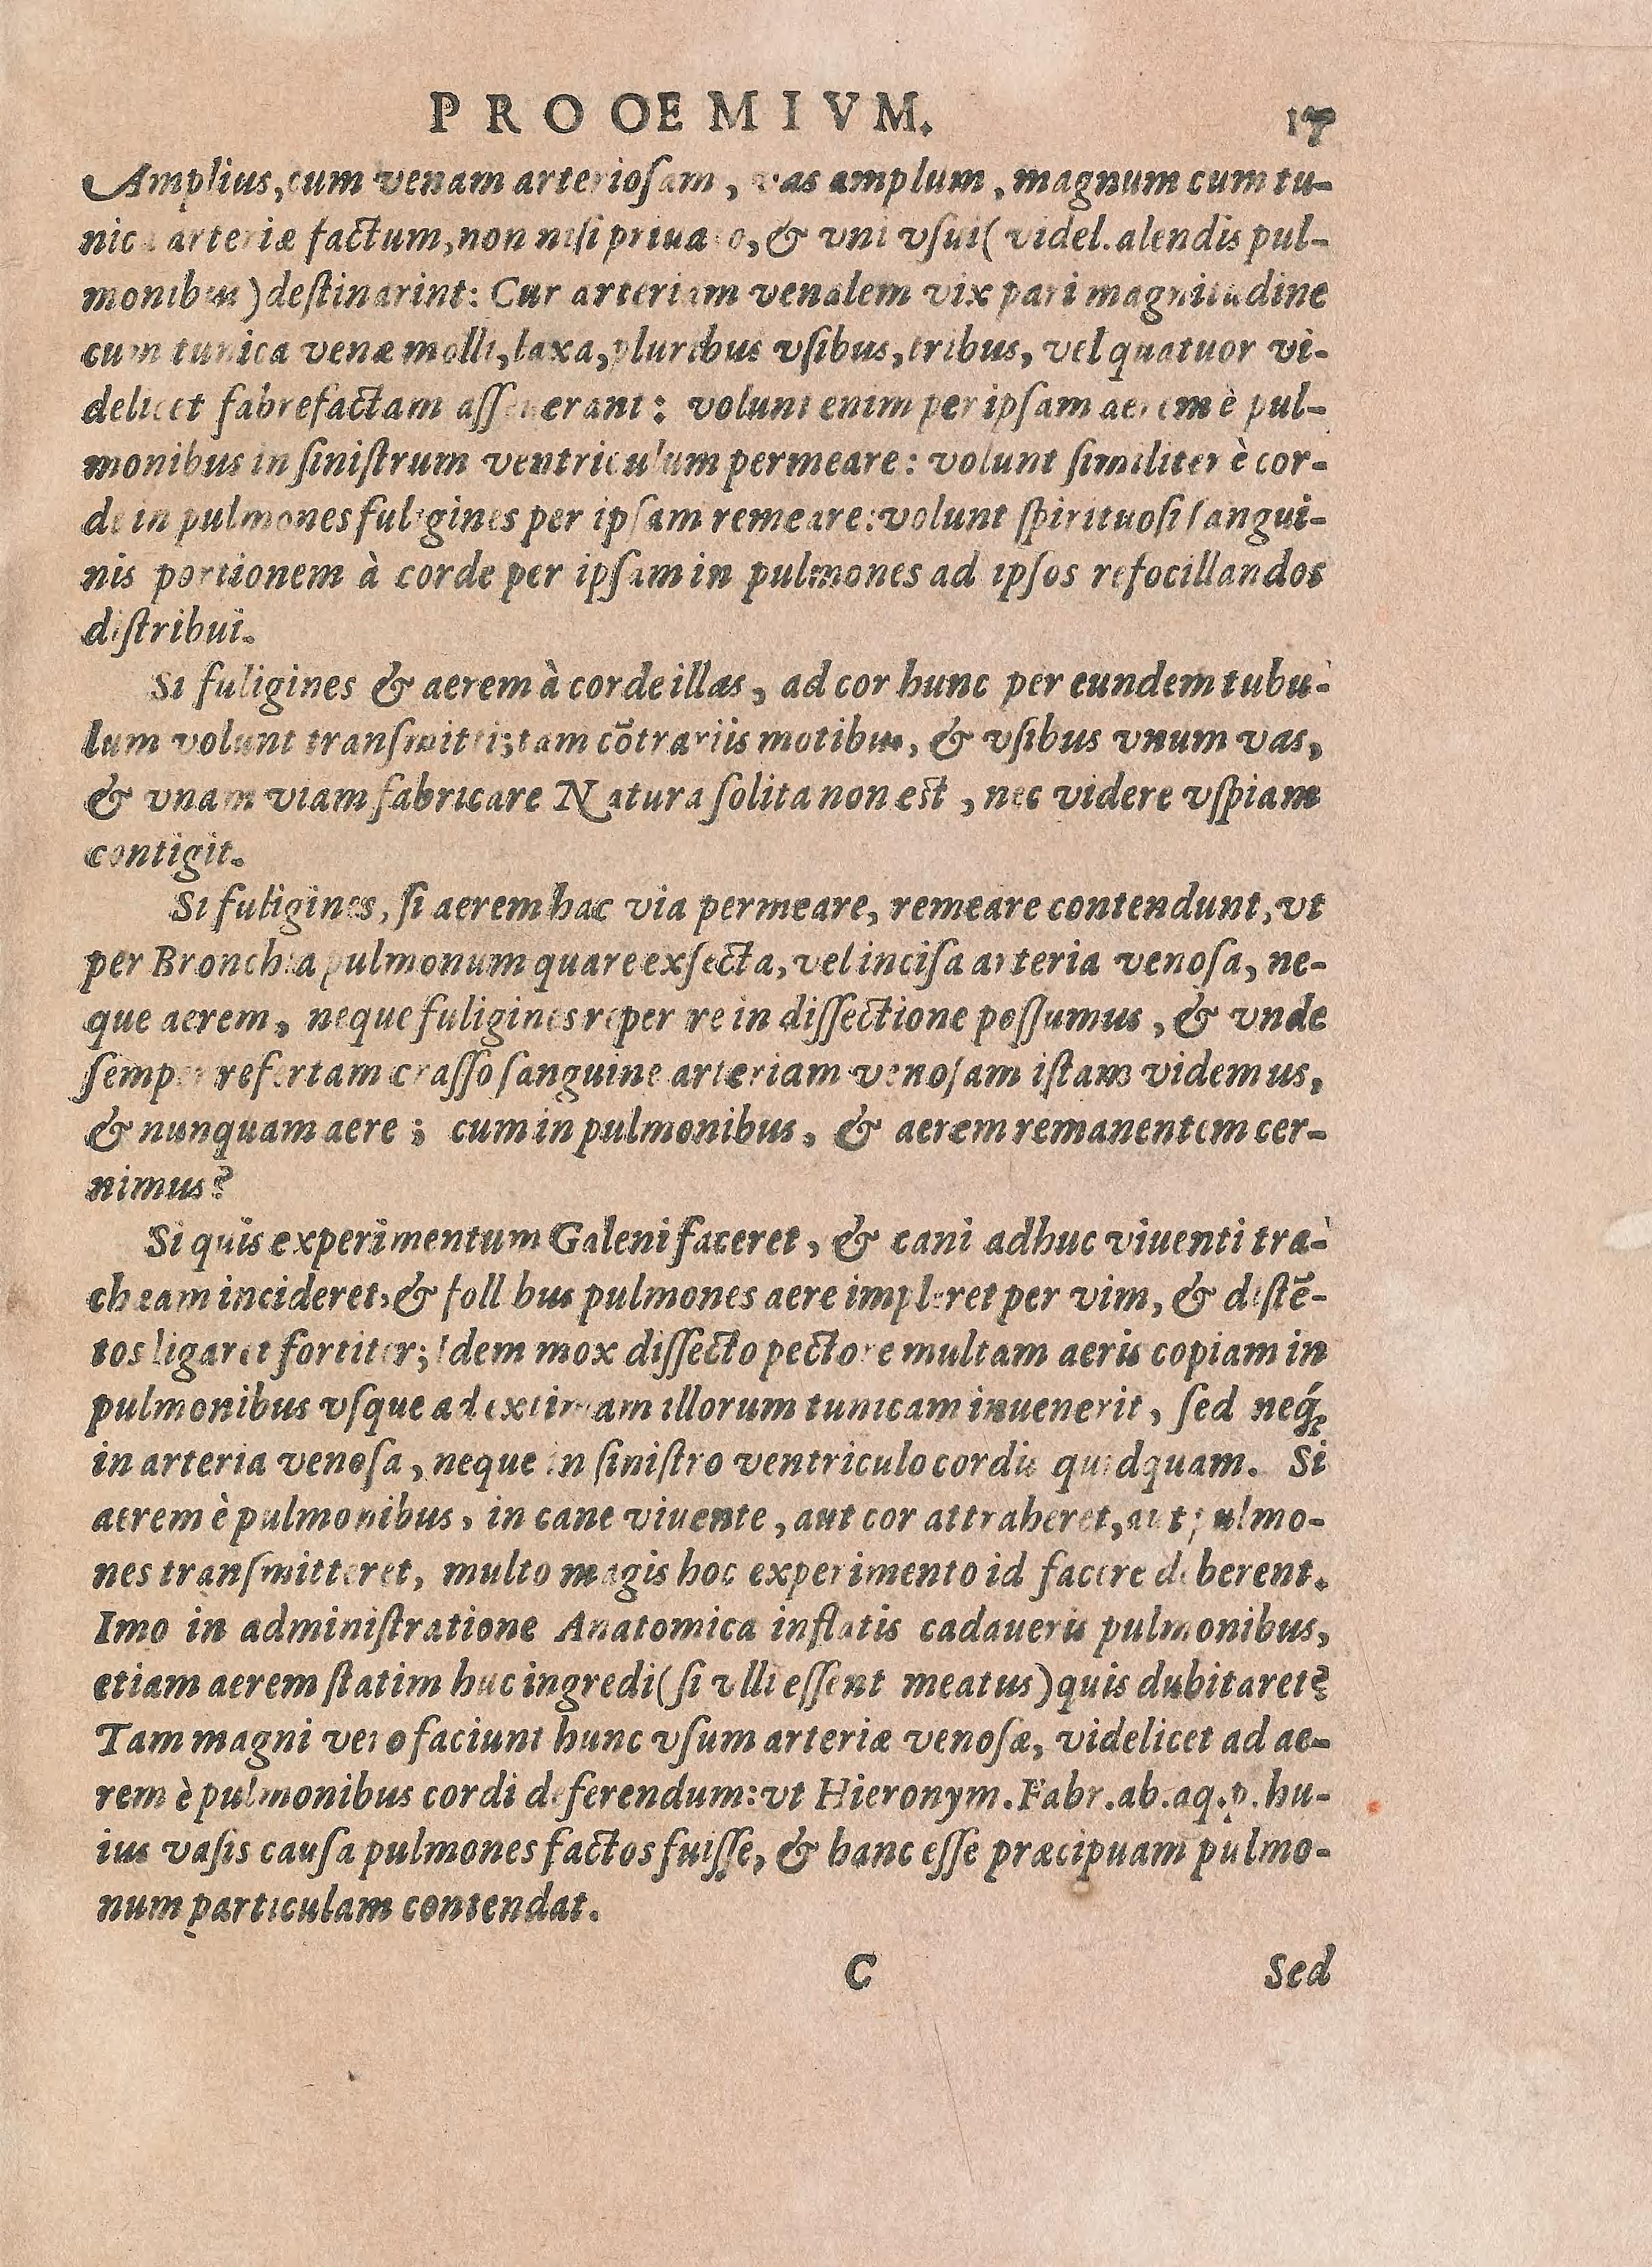 PROOEMIVM. 17
Amplius, cum venam arteriosam, vas amplum, magnum cum tu-
nica arteriæ factum, non nisi priuato, & vni vsui (videl. alendis pul-
monibus) destinarint: Cur arteriam venalem vix pari magnitudine
cum tunica venæ molli, laxa, pluribus vsibus, tribus, vel quatuor vi-
delicet fabrefactam asseuerant: volunt enim per ipsam aerem è pul-
monibus in sinistrum ventriculum permeare: volunt similiter è cor-
de in pulmones fuligines per ipsam remeare: volunt spirituosi sangui-
nis portionem à corde per ipsam in pulmones ad ipsos refocillandos
distribui.
Si fuligines & aerem à corde illas, ad cor hunc per eundem tubu-
lum volunt transmitti; tam cōtrariis motibus, & vsibus vnum vas,
& vnam viam fabricare Natura solita non est, nec videre vspiam
contigit.
Si fuligines, si aerem hac via permeare, remeare contendunt, vt
per Bronchia pulmonum quare exsecta, vel incisa arteria venosa, ne-
que aerem, neque fuligines reperire in dissectione possumus, & vnde
semper refertam crasso sanguine arteriam venosam istam videmus,
& nunquam aere; cum in pulmonibus, & aerem remanentem cer-
nimus?
Si quis experimentum Galeni faceret, & cani adhuc viuenti tra-
cheam incideret, & follibus pulmones aere impleret per vim, & distē-
tos ligaret fortiter; Idem mox dissecto pectore multam aeris copiam in
pulmonibus vsque ad extimam illorum tunicam inuenerit, sed neq́;
in arteria venosa, neque in sinistro ventriculo cordis quidquam. Si
aerem è pulmonibus, in cane viuente, aut cor attraheret, aut pulmo-
nes transmitteret, multo magis hoc experimento id facere deberent.
Imo in administratione Anatomica inflatis cadaueris pulmonibus,
etiam aerem statim huc ingredi (si vlli essent meatus) quis dubitaret?
Tam magni vero faciunt hunc vsum arteriæ venosæ, videlicet ad ae-
rem è pulmonibus cordi deferendum: vt Hieronym. Fabr. ab. aq. p. hu-
ius vasis causa pulmones factos fuisse, & hanc esse præcipuam pulmo-
num particulam contendat.
C Sed